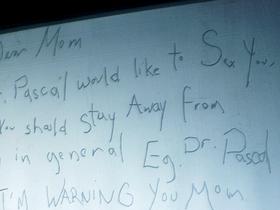 Dear Mom
. Pascal would like to Sex you,
You should Stay Away from
in general Eg. Dr. Pascal
I'M WARNING YOU MOM